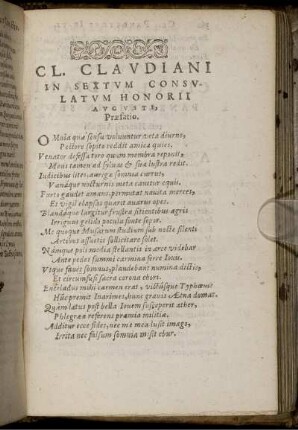 CL. CLAVDIANI
IN SEXTVM CONSV-
LATVM HONORII
AVGVSTI,
Præfatio.
OMnia quæ sensu voluuntur vota diurno,
Pectore sopito reddit amica quies.
Venator defessa toro quum membra reponit,
Mens tamen ad syluas & sua lustra redit.
Iudicibus lites, aurigæ somnia currus,
Vanáque nocturnis meta cauetur equis.
Furto gaudet amans: permutat nauita merces,
Et vigil elapsas quærit auarus opes.
Blandáque largitur frustra sitientibus ægris
Irriguus gelido pocula fonte sopor.
Me quoque Musarum studium sub nocte silenti
Artibus assuetis sollicitare solet.
Námque poli media stellantis in arce videbar
Ante pedes summi carmina ferre Iouis.
Vtque fauet somnus, plaudebant numina dictis,
Et circumfusi sacra corona chori.
Enceladus mihi carmen erat, victúsque Typhœus:
Hic premit Inarimen, hunc grauis Aetna domat.
Quàm lætus post bella Iouem susceperit æther,
Phlegrææ referens præmia militiæ.
Additur ecce fides, nec me mea lusit imago,
Irrita nec falsum somnia misit ebur.